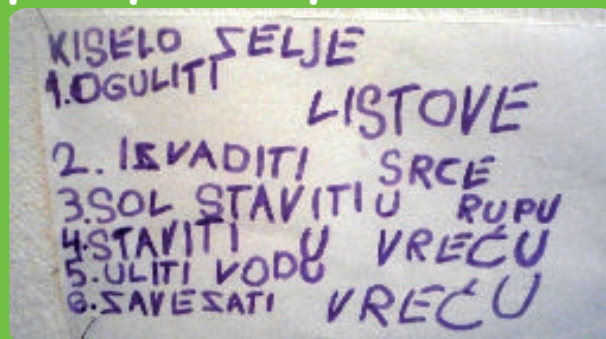 KISELO ZELJE
1.OGULITI LISTOVE
2. IZVADITI SRCE
3.SOL STAVITI U RUPU
4.STAVITI U VREĆU
5.ULITI VODU
6.ZAVEZATI VREĆU